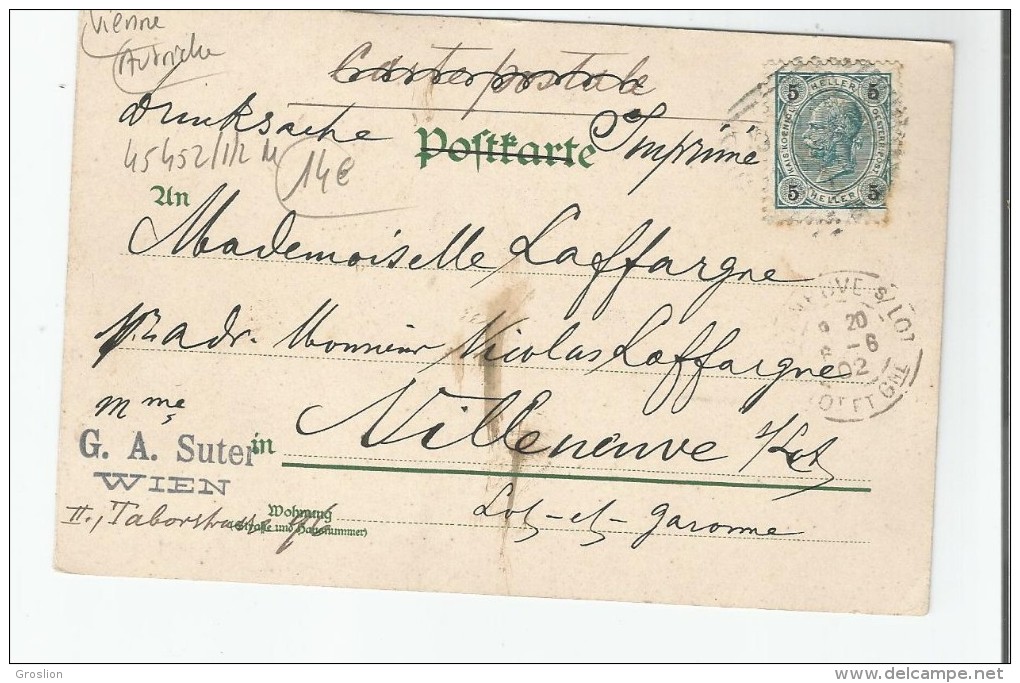 Vienne
Autriche
Carte postale
Drucksache
Postkarte
Imprimé
45452/112 M
14€
An
Mademoiselle Laffargue
adr. Monsieur Nicolas Laffargue
Mme
G. A. Suter
WIEN
in
Villeneuve s/Lot
II., Taborstrasse
Wohnung
(Straße und Hausnummer)
Lot-et-Garonne
5 HELLER 5
KAIS. KOENIGL.
OESTERR. POST
5 HELLER 5
NEUVE S/LOT
20
-6
02
LOT ET GNE
Groslion
www.delcampe.net